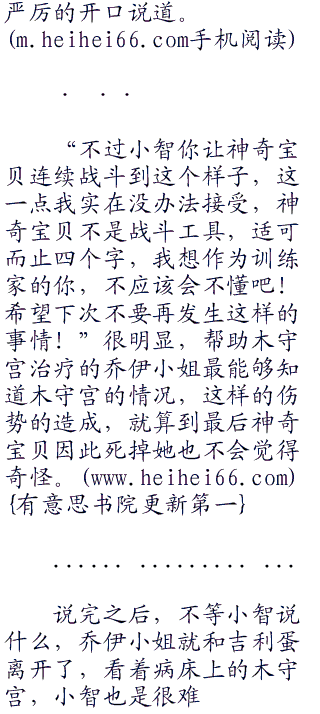 严厉的开口说道。
(m.heihei66.com手机阅读)
. . .
“不过小智你让神奇宝
贝连续战斗到这个样子，这
一点我实在没办法接受，神
奇宝贝不是战斗工具，适可
而止四个字，我想作为训练
家的你，不应该会不懂吧！
希望下次不要再发生这样的
事情！”很明显，帮助木守
宫治疗的乔伊小姐最能够知
道木守宫的情况，这样的伤
势的造成，就算到最后神奇
宝贝因此死掉她也不会觉得
奇怪。(www.heihei66.com)
{有意思书院更新第一}
...... ......... ...
说完之后，不等小智说
什么，乔伊小姐就和吉利蛋
离开了，看着病床上的木守
宫，小智也是很难